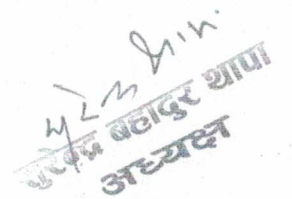 सुरेन्द्र बहादुर थापा
अध्यक्ष